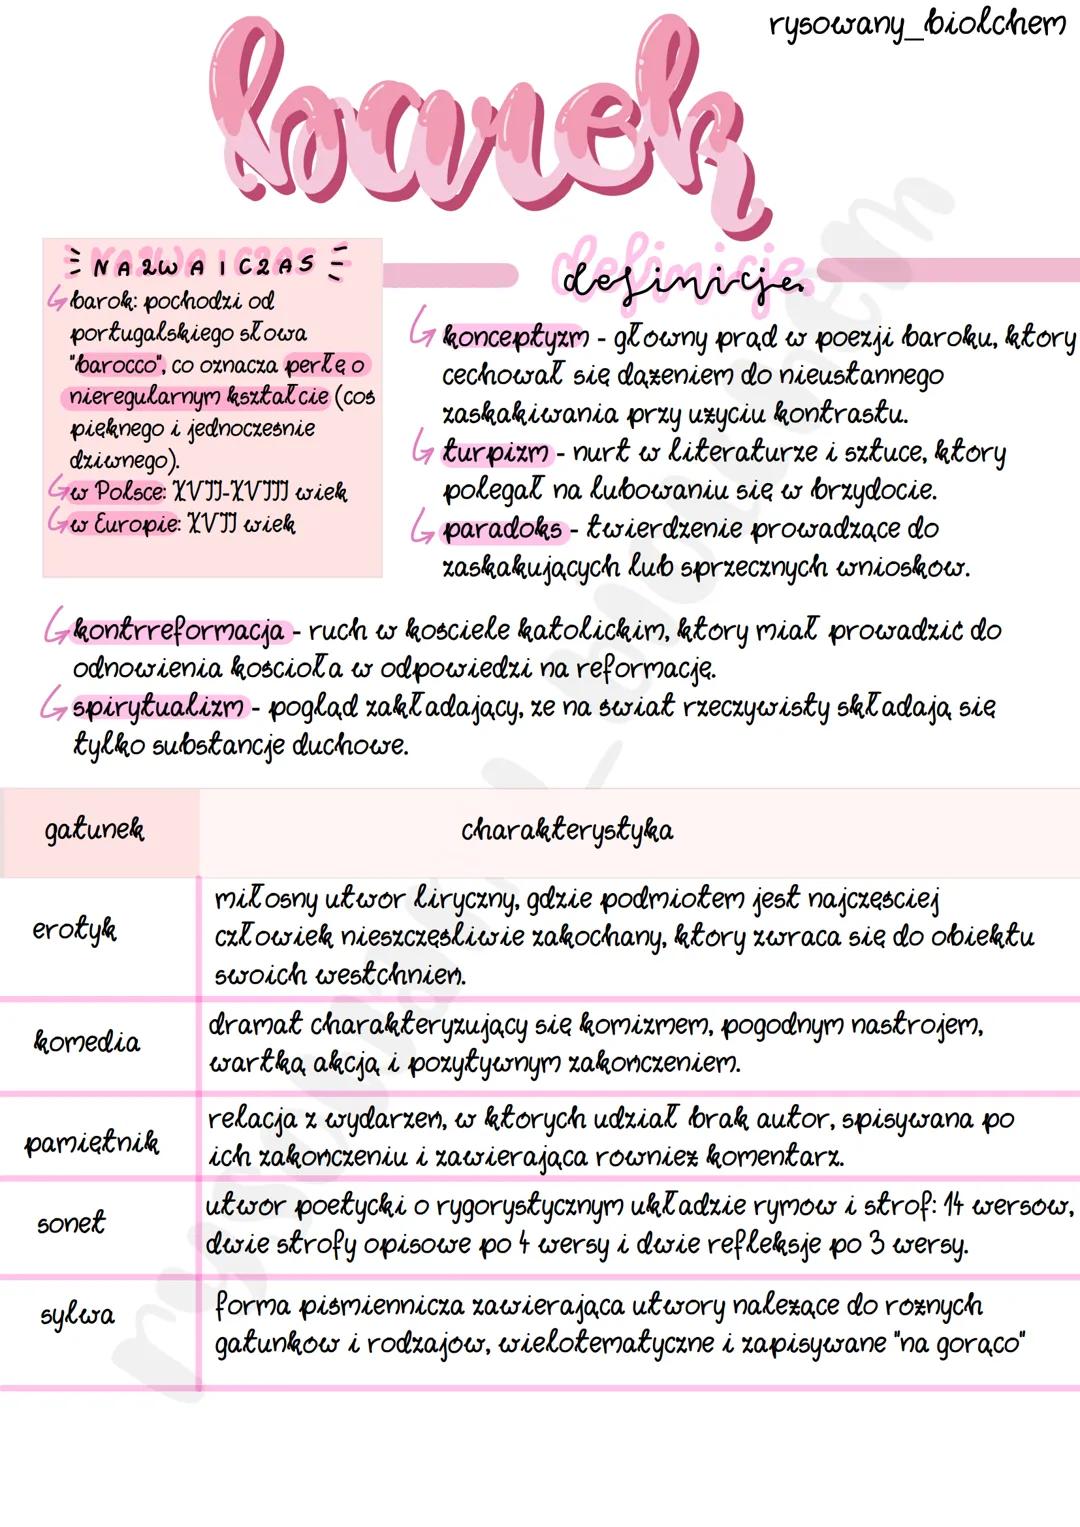 rysowany_biolchem
barok
NAZWA I CZAS
barok: pochodzi od
portugalskiego słowa
"barocco", co oznacza perłę o
nieregularnym kształcie (coś
pięknego i jednocześnie
dziwnego).
w Polsce: XVII-XVIII wiek
w Europie: XVII wiek
definicje
konceptyzm - główny prąd w poezji baroku, który
cechował się dążeniem do nieustannego
zaskakiwania przy użyciu kontrastu.
turpizm - nurt w literaturze i sztuce, który
polegał na lubowaniu się w brzydocie.
paradoks - twierdzenie prowadzące do
zaskakujących lub sprzecznych wniosków.
kontrreformacja - ruch w kościele katolickim, który miał prowadzić do
odnowienia kościoła w odpowiedzi na reformację.
spirytualizm - pogląd zakładający, że na świat rzeczywisty składają się
tylko substancje duchowe.
gatunek charakterystyka
erotyk
miłosny utwór liryczny, gdzie podmiotem jest najczęściej
człowiek nieszczęśliwie zakochany, który zwraca się do obiektu
swoich westchnień.
komedia
dramat charakteryzujący się komizmem, pogodnym nastrojem,
wartką akcją i pozytywnym zakończeniem.
pamiętnik
relacja z wydarzeń, w których udział brak autor, spisywana po
ich zakończeniu i zawierająca również komentarz.
sonet
utwór poetycki o rygorystycznym układzie rymów i strof: 14 wersów,
dwie strofy opisowe po 4 wersy i dwie refleksje po 3 wersy.
sylwa
forma piśmiennicza zawierająca utwory należące do różnych
gatunków i rodzajów, wielotematyczne i zapisywane "na gorąco"
rysowany_biolchem